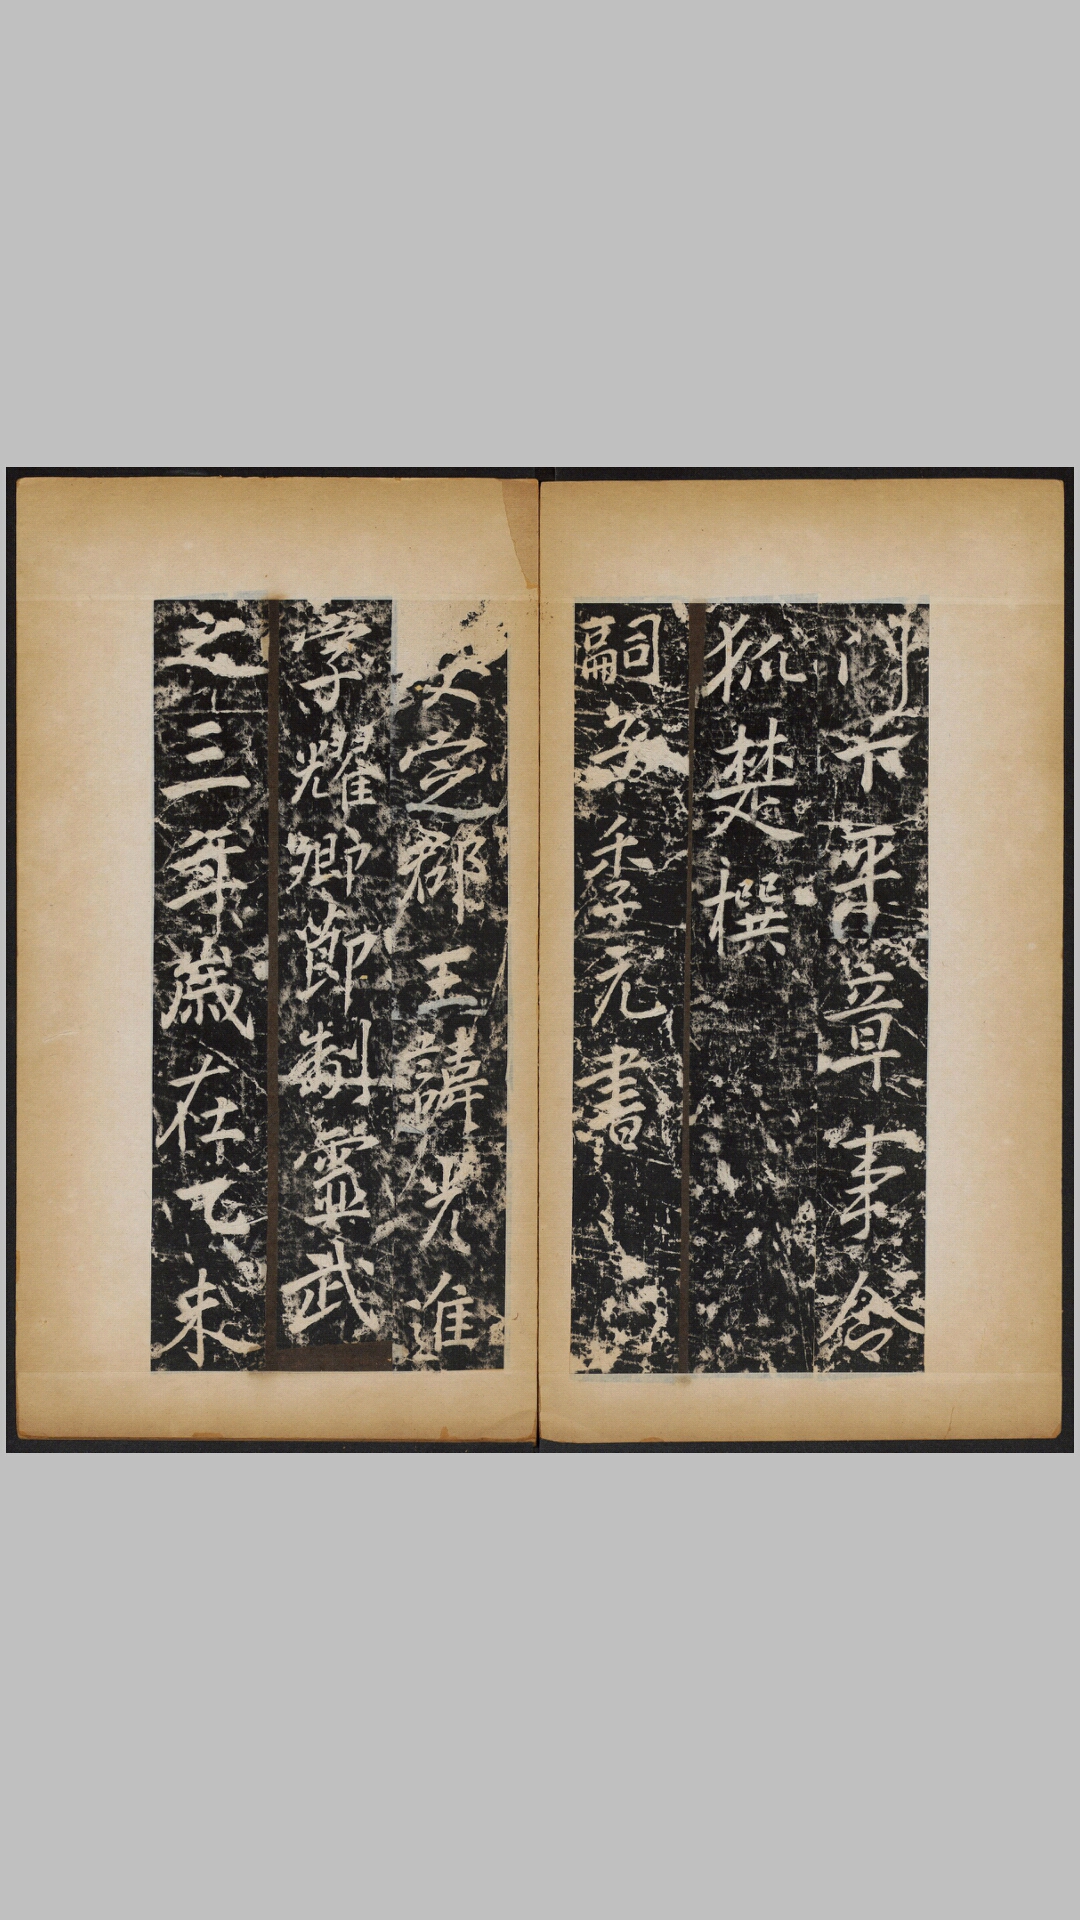 門下平章事令
狐楚撰
嗣子季元書
安定郡王諱光進
字耀卿節制靈武
之三年歲在乙未